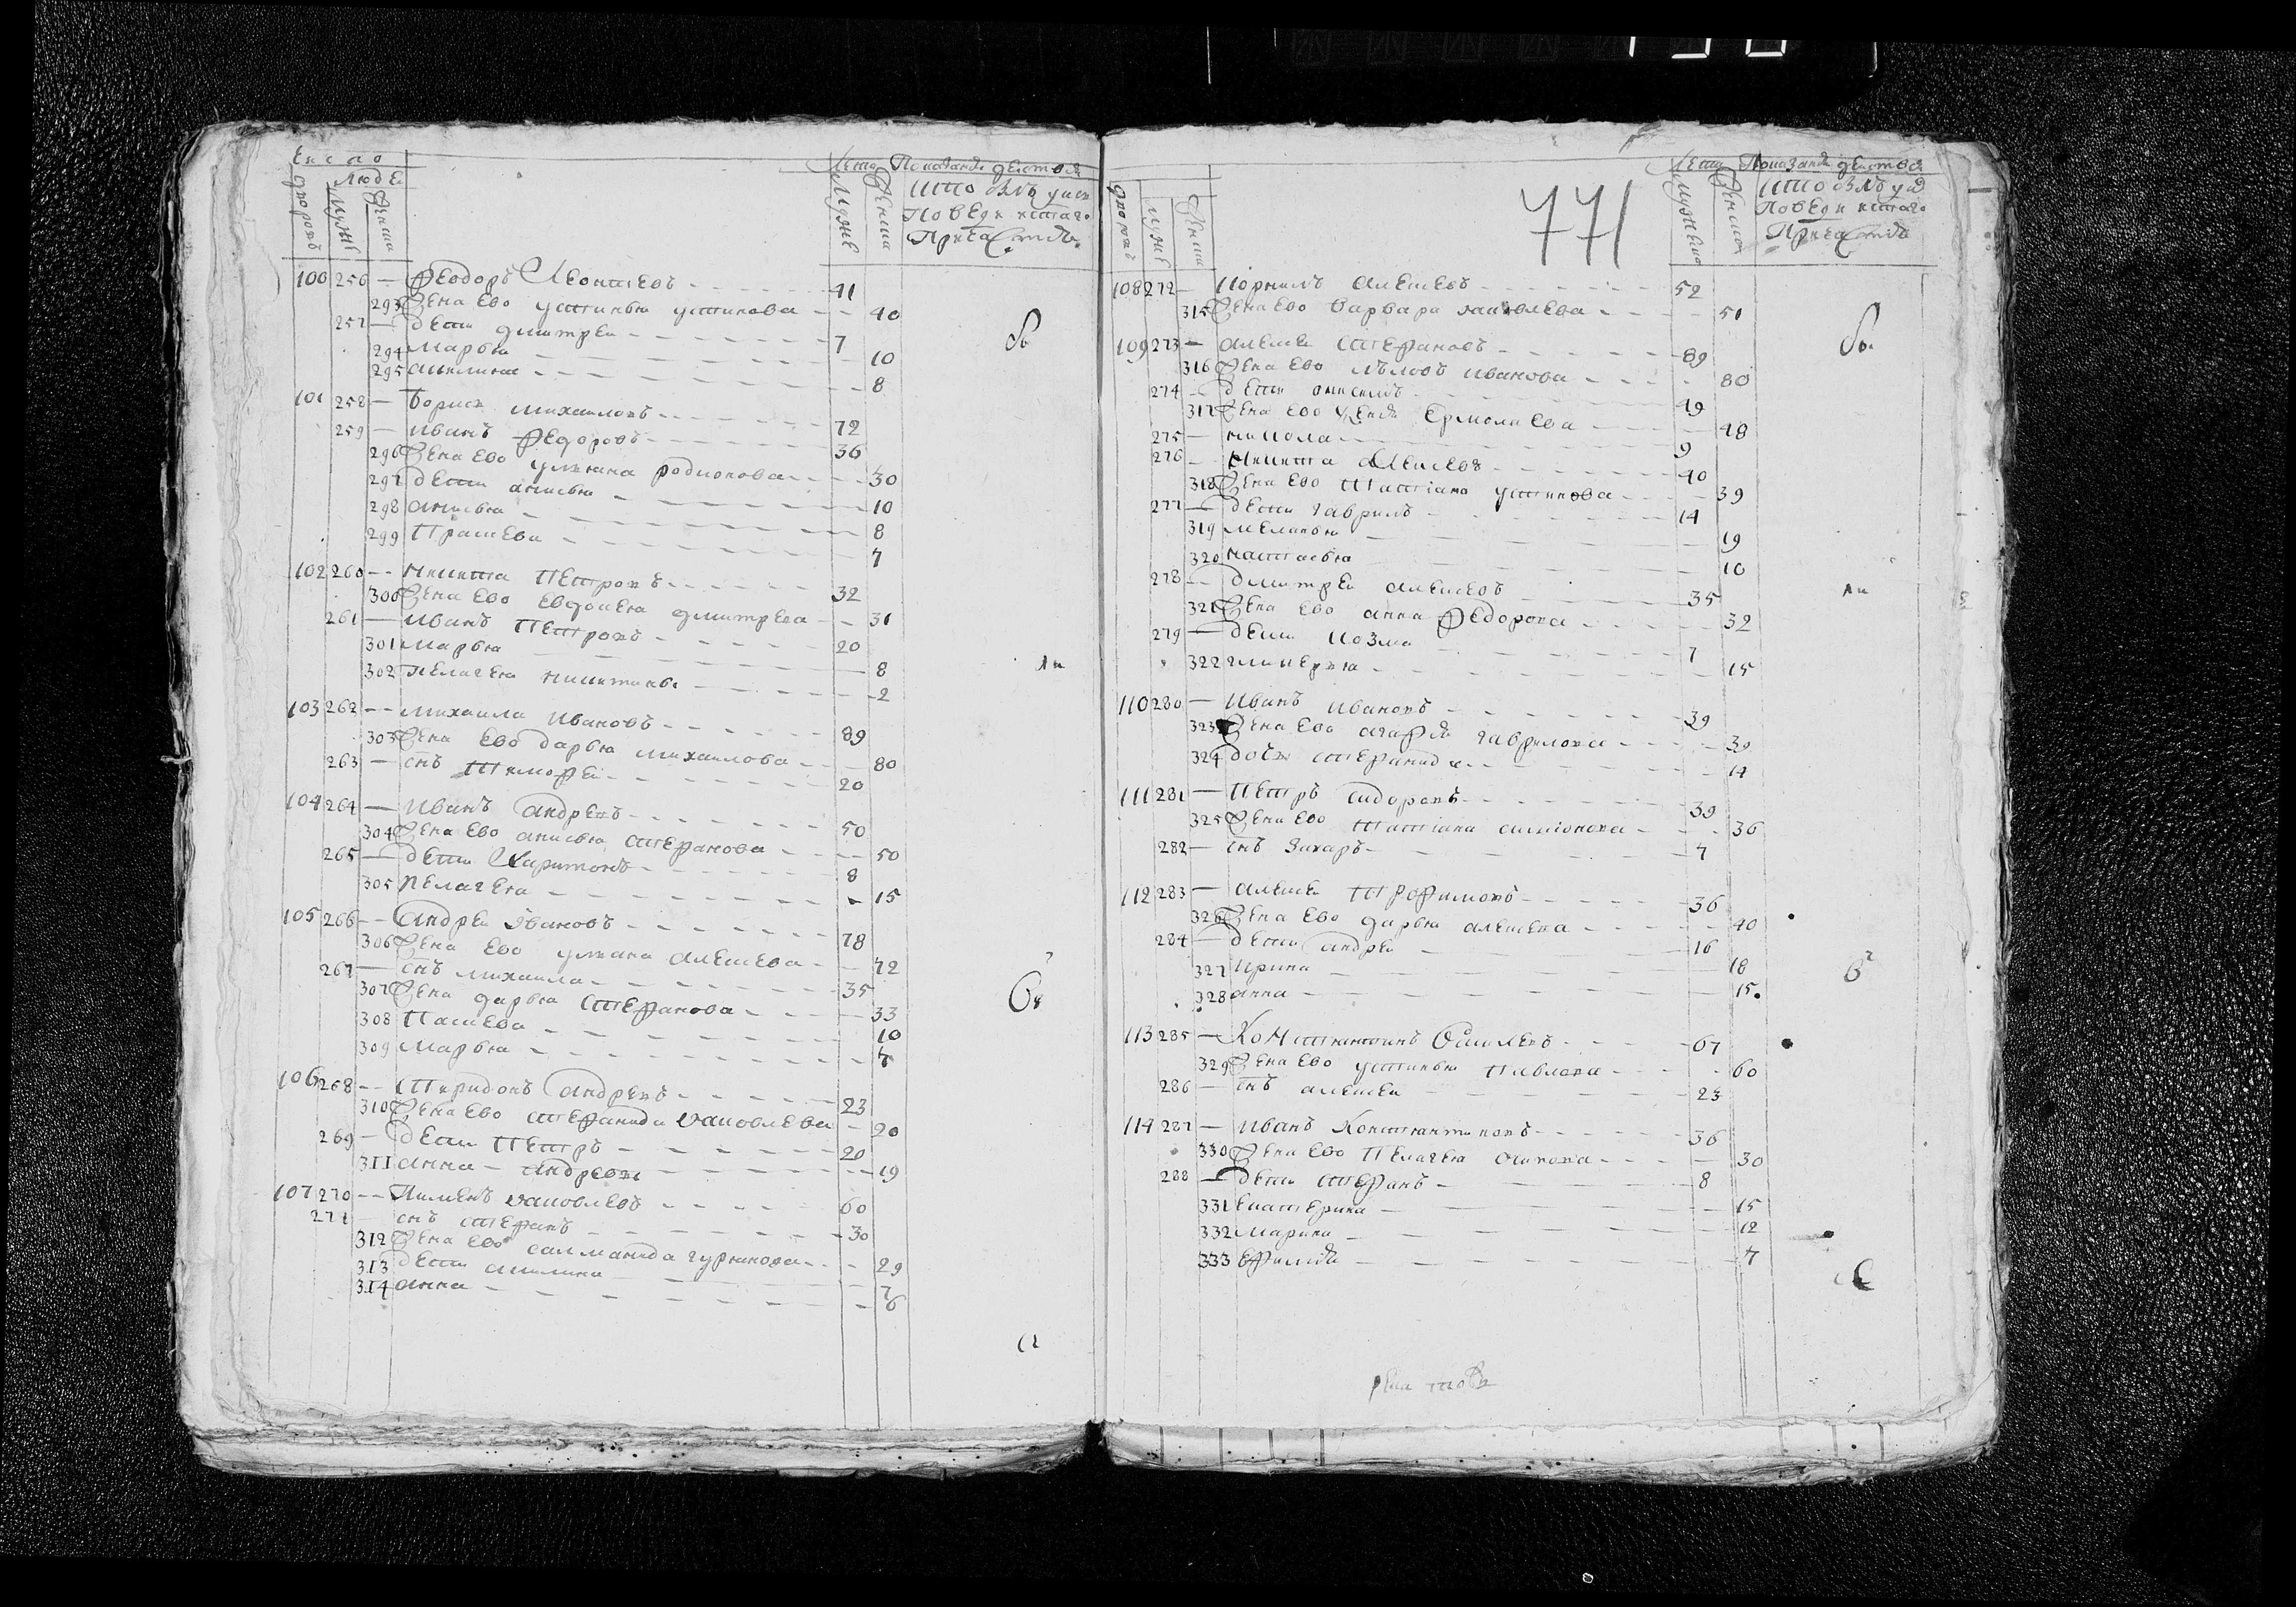 Число
Люде
дворовъ
Мужс
Женска
Лета
Мужс
Женска
Показание действа
Кто былъ у исп
Поведи и кто
Причастия
100 256 — Феодоръ Леонтиевъ 41
293 Жена ево устинья устинова 40
257 — дети дмитрей 7
294 Марья 10
295 акилина 8
101 258 — Борисъ михаиловъ 72
259 — иванъ Федоровъ 36
296 Жена ево ульяна родионова 30
297 дети анисья 10
298 анисья 8
299 Прасковья 7
102 260 — никита Петровъ 32
300 Жена ево евдокея дмитрева 31
261 — иванъ Петровъ 20
301 марья 8
302 пелагея никитина 2
103 262 — михаила ивановъ 89
303 Жена ево дарья михаилова 80
263 — снъ Тимофей 20
104 264 — иванъ андревъ 50
304 Жена ево анисья стефанова 50
265 — дети Харитонъ 8
305 пелагея 15
105 266 — андрей ивановъ 78
306 Жена ево ульяна алексева 72
267 — снъ михаила 35
307 Жена дарья стефанова 33
308 10
309 Марья 7
106 268 — спиридонъ андревъ 23
310 Жена ево стефанида яковлева 20
269 — дети Петръ 20
311 анна андреевы 19
107 270 — Пименъ яковлевъ 60
271 снъ стефанъ 30
312 Жена ево саламанида 29
313 дети акилина 7
314 анна 6
771
дворовъ
Мужс
Женска
Лета
Мужеска
Женска
Показание действа
Кто былъ у
Поведи и кто
Причастия
108 272 — Корнилъ алексевъ 52
315 Жена ево варвара яковлева 51
109 273 — алексей стефановъ 89
316 Жена ево иванова 80
274 — дети анисимъ 49
317 Жена ево ермолаева 48
275 — никола 9
276 — никита алексевъ 40
318 Жена ево татиана устинова 39
277 — дети гаврилъ 14
319 меланья 19
320 настасья 10
278 — дмитрей алексевъ 35
321 Жена ево анна Федорова 32
279 — дети козма 7
322 гликерья 15
110 280 — иванъ ивановъ 39
323 Жена ево агафия гаврилова 39
324 дочь стефанида 14
111 281 — Петръ сидоровъ 39
325 Жена ево татиана симионова 36
282 — снъ Захаръ 7
112 283 — алексей трофимовъ 36
326 Жена ево дарья алексева 40
284 — дети андрей 16
327 ирина 18
328 анна 15
113 285 — Констянтинъ 67
329 Жена ево устинья павлова 60
286 — снъ алексей 23
114 287 — иванъ Констянтиновъ 36
330 Жена ево Пелагея осипова 30
288 — дети стефанъ 8
331 екатерина 15
332 марина 12
333 ефимия 7